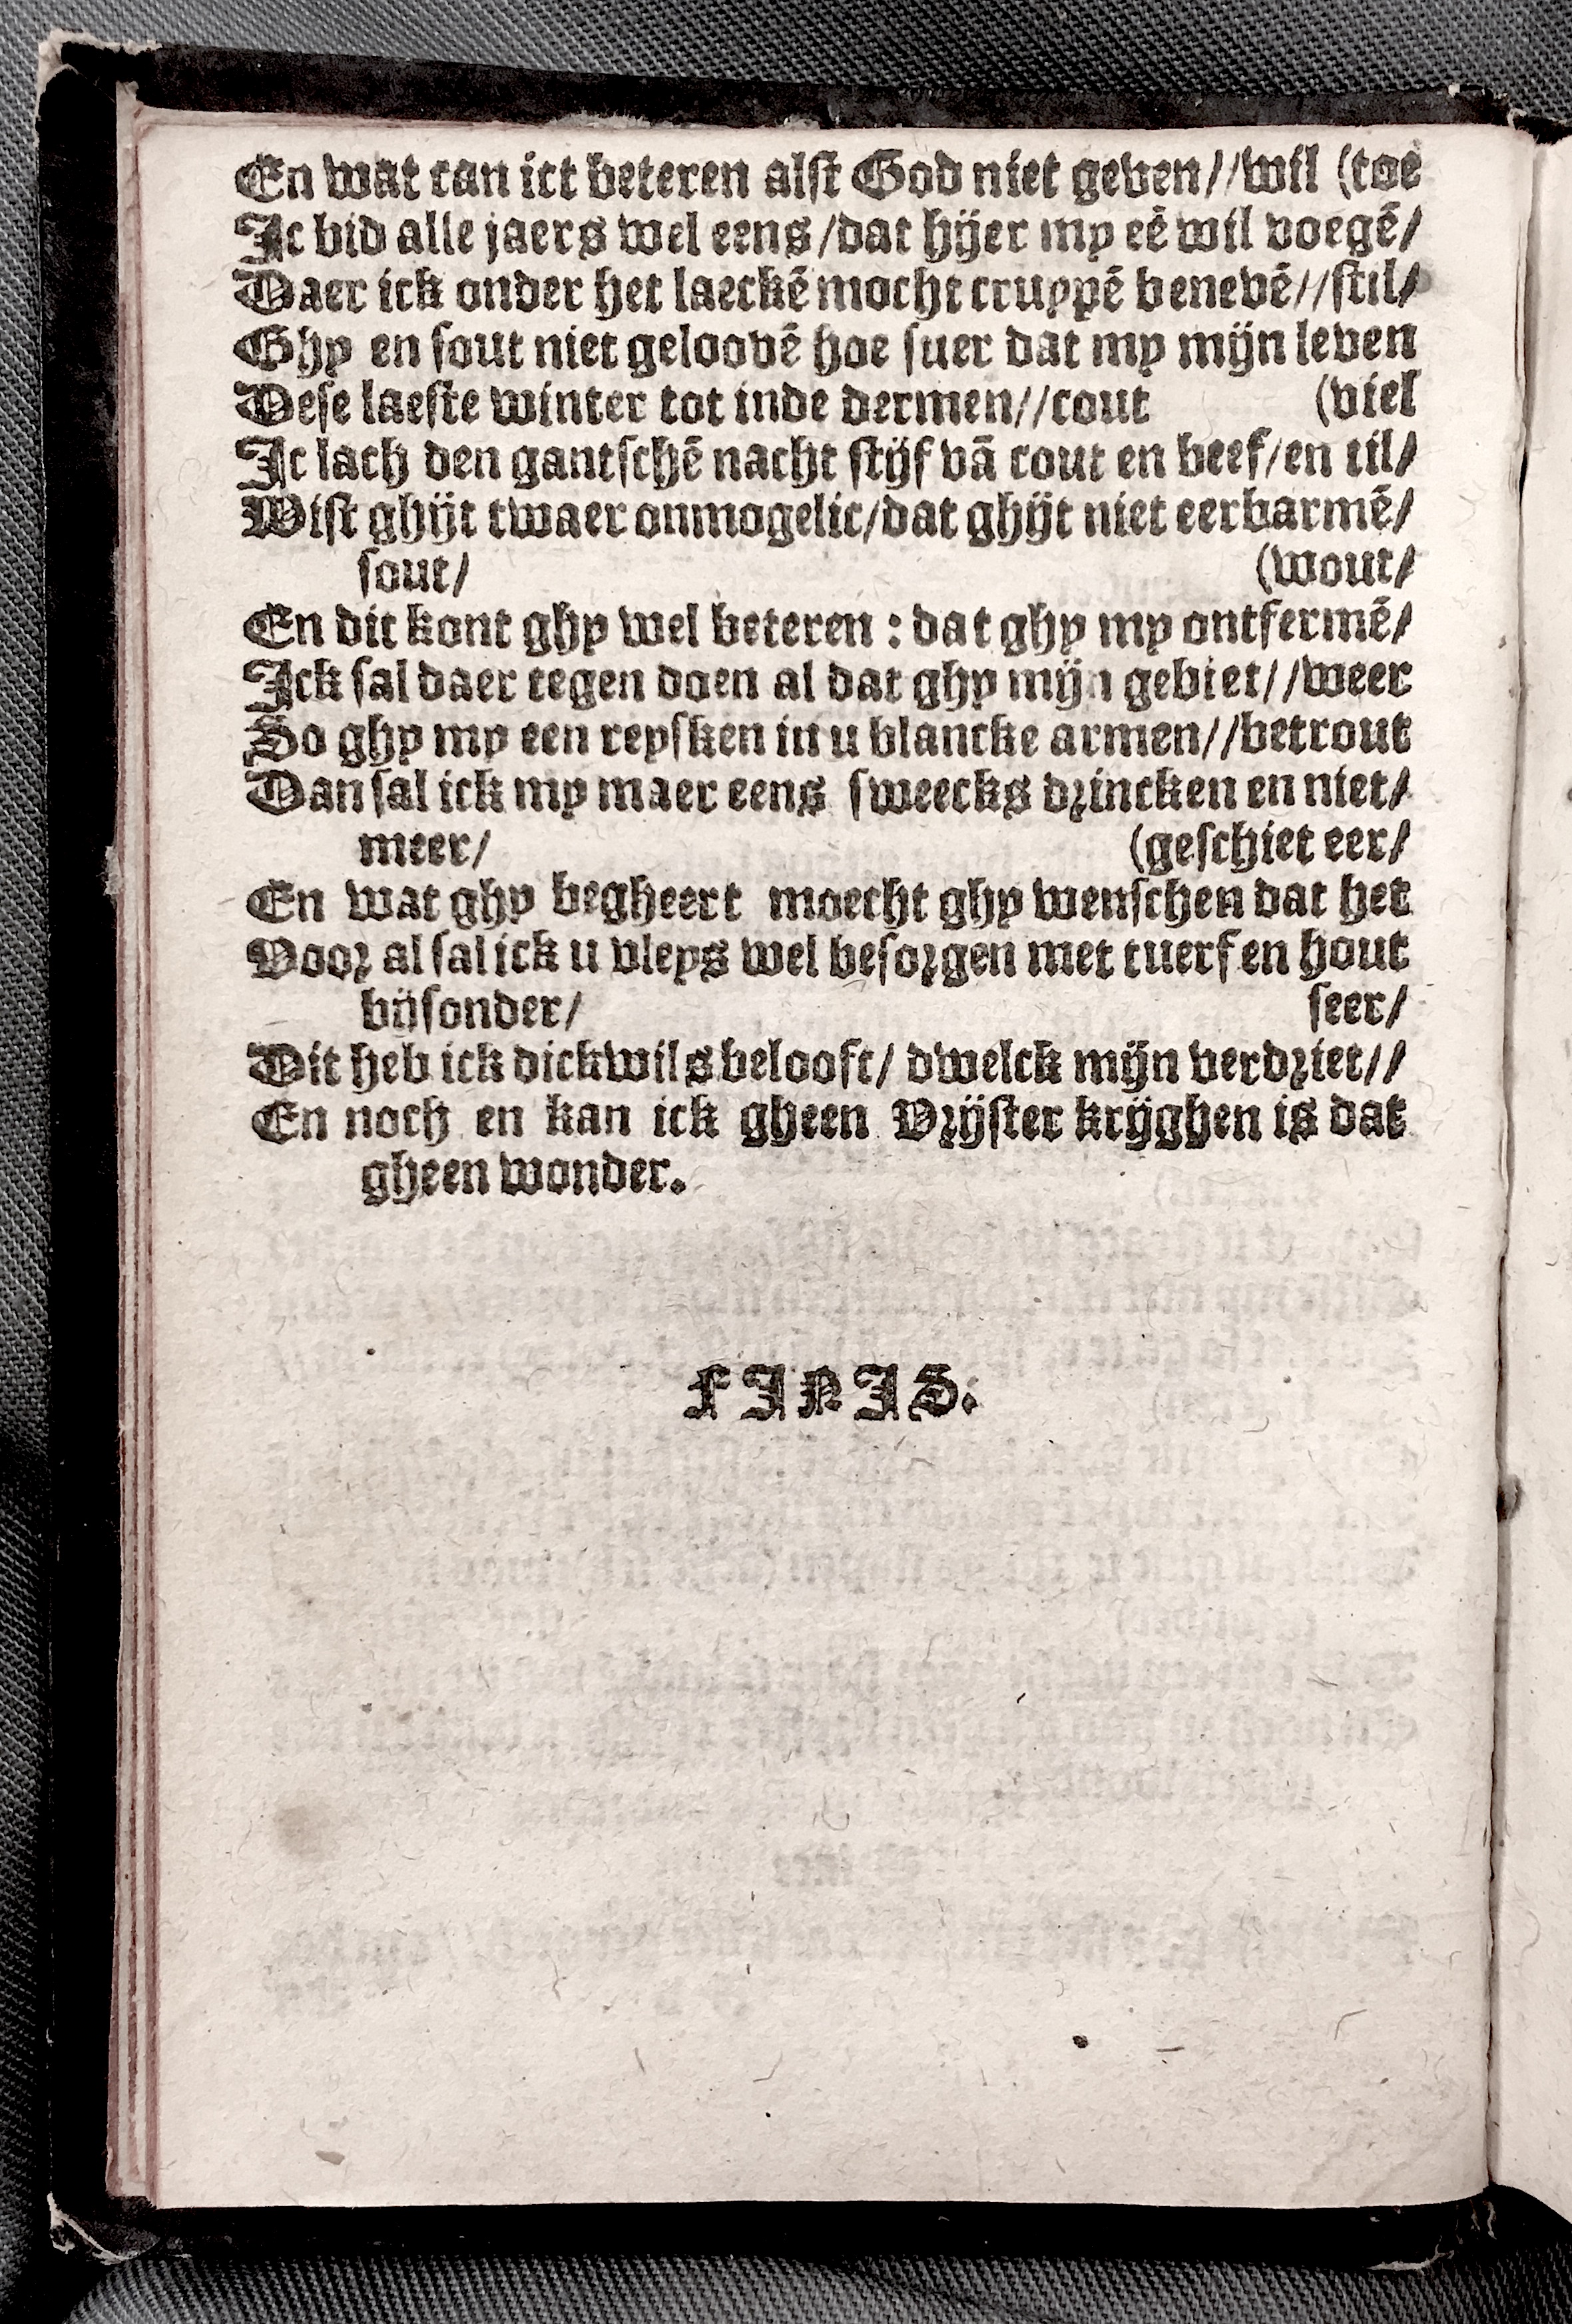 En wat can ict beteren alst God niet geven//wil (toe
Ic bid alle jaers wel eens/dat hijer my eē wil voegē/
Daer ick onder het laeckē mocht cruppē benevē//stil/
Ghy en sout niet geloovē hoe suer dat my mijn leven
Dese laeste winter tot inde dermen//cout (viel
Ic lach den gantschē nacht stijf vā cout en beef/en til/
Wist ghijt twaer onmogelic/dat ghijt niet eerbarmē/
sout/ (wout/
En dit kont ghy wel beteren : dat ghy my ontfermē/
Ick sal daer tegen doen al dat ghy mijn gebiet//weer
So ghy my een reysken in u blancke armen//betrout
Dan sal ick my maer eens sweecks drincken en niet/
meer/ (geschiet eer/
En wat ghy begheert moecht ghy wenschen dat het
Voor al sal ick u vleys wel besorgen met tuerf en hout
bijsonder/ seer/
Dit heb ick dickwils belooft/ dwelck mijn verdriet//
En noch en kan ick gheen Vrijster krijghen is dat
gheen wonder.
FINIS.